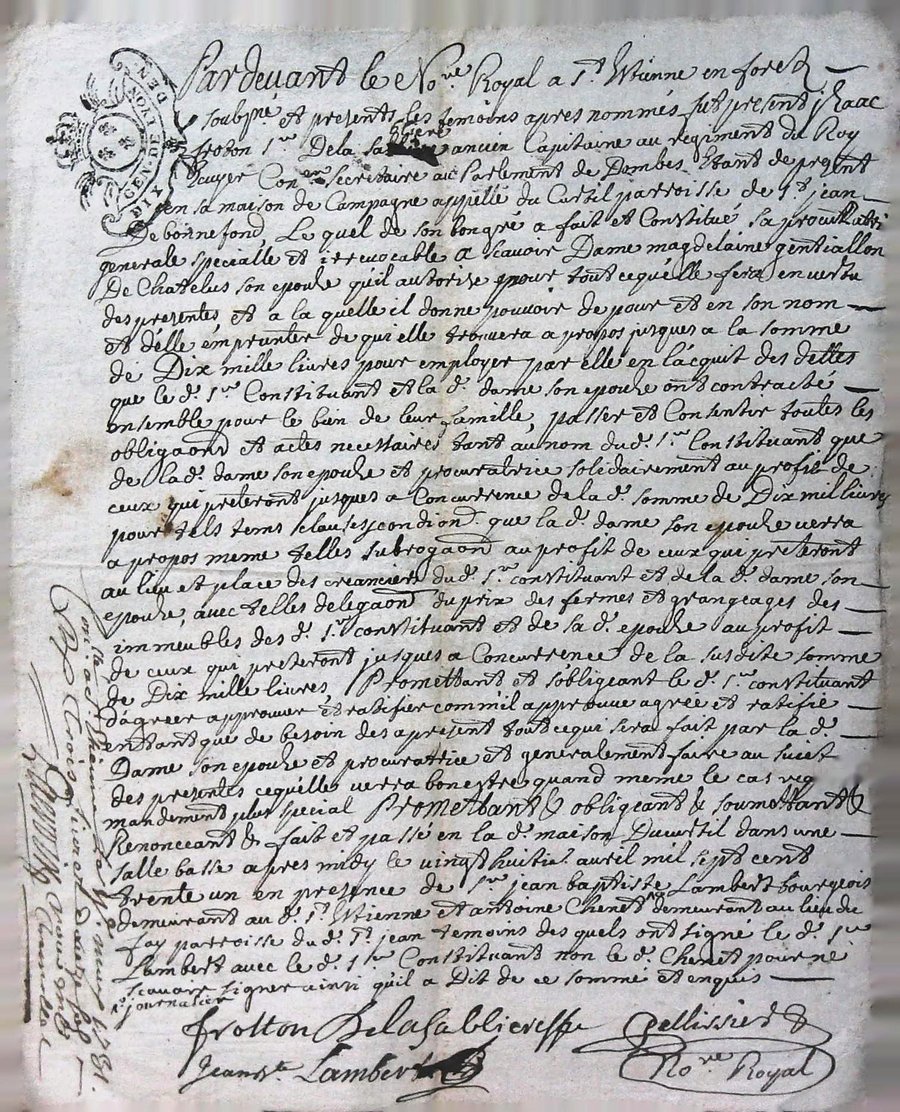 GEN DE LYON
Pardevant le No.re Royal a St Etienne en forez
soubsne et presents les temoins apres nommés fut present Isaac
froton Sr De la sabliere ancien Capitaine au regiment du Roy
Ecuyer Con.er Secretaire au Parlement de Dombes Etant de present
en sa maison de Campagne appellé du Curtil parroisse de St jean
De bonnefond, Le quel de son bon gré a fait et Constitué sa procuratrice
generale specialle et irrevocable a scavoir Dame magdelaine gentiallon
De Chatelus son epouse quil autorize pour tout cequelle fera en vertu
des presentes et a la quelle il donne pouvoir de pour et en son nom
et delle emprunter de qui elle trouvera a propos jusques a la somme
de Dix mille livres pour employer par elle en lacquit des dettes
que le d. Sr Constituant et la d. dame son epouse ont contracté
ensemble pour le bien de leur famille, passer et Consentir toutes les
obligaons et actes necessaires tant au nom dud. Sr Constituant que
de la d. dame son epouse et procuratrice solidairement au profit de
ceux qui preteront jusques a Concurrence de la d. somme de Dix mil livres
pour tels tems clauses condions que la d. dame son epouse verra
a propos meme telles subrogaons au profit de ceux qui preteront
au lieu et place des creanciers dud. Sr constituant et de la d. dame son
epouse, avec telles delegaons du prix des fermes et grangeages des
immeubles des d. Sr constituant et de sa d. epouse au profit
de ceux qui preteront jusques a Concurrence de la susdite somme
de Dix mille livres, Promettant et sobligeant le d. Sr constituant
dagreer approuver et ratifier comm'il approuve agrée et ratifie
entant que de besoin des apresent tout cequi sera fait par la d.
Dame son epouse et procuratrice et generalement faire au sujet
des presentes cequelle verra bon estre quand meme le cas req
mandement plus special Promettant & obligeant & soumettant &
Renonceant & fait et passé en la d. maison Du curtil dans une
salle basse apres midy le vingt huitie. avril mil sept cent
trente un en presence de Sr jean baptiste Lambert bourgeois
demeurant au d. St Etienne et antoine Chenet demeurant au lieu du
fay parroisse du d. St jean temoins des quels ont signé le d. Sr
Lambert avec le d. Sr Constituant non le d. Chenet pour ne
scavoir signer ainsi quil a Dit de ce sommé et enquis
journalier
frotton Delasabliere
Pellissier
Jean Bte Lambert
No.re Royal